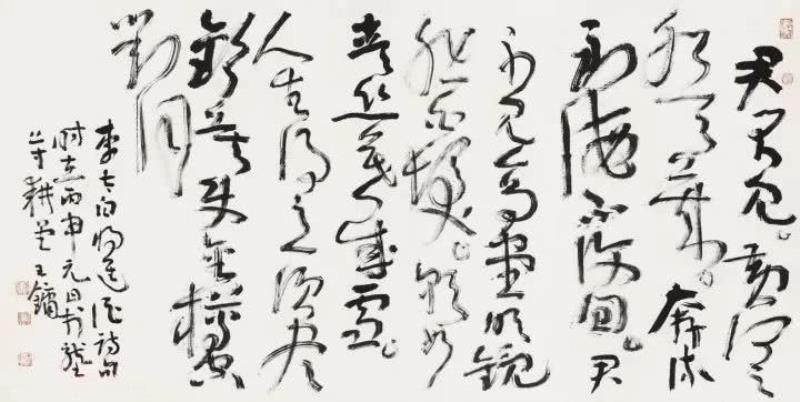 君不見。黃河之
水天上來。奔流
到海不復回。君
不見高堂明鏡
悲白髮。朝如
青絲暮成雪。
人生得意須盡
歡莫使金樽空
對月
李太白將進酒詩句
時在丙申元日於
耕堂 王鏞